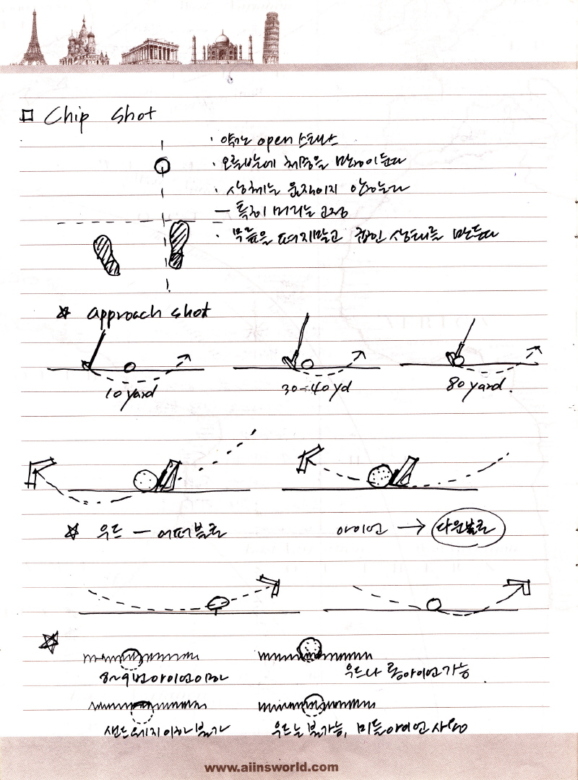 Chip shot
· 약간 open 스탠스
· 오른발에 체중을 많이 둔다
· 상체는 움직이지 않는다
— 특히 머리는 고정
· 무릎을 펴지말고 굽힌 상태를 만든다
approach shot
10 yard
30~40yd
80 yard.
우드 — 어퍼블로
아이언 → 다운블로
8~9번 아이언 이하
우드나 롱아이언 가능
샌드웨지 이하 불가
우드는 불가능, 미들아이언 사용
www.aiinsworld.com